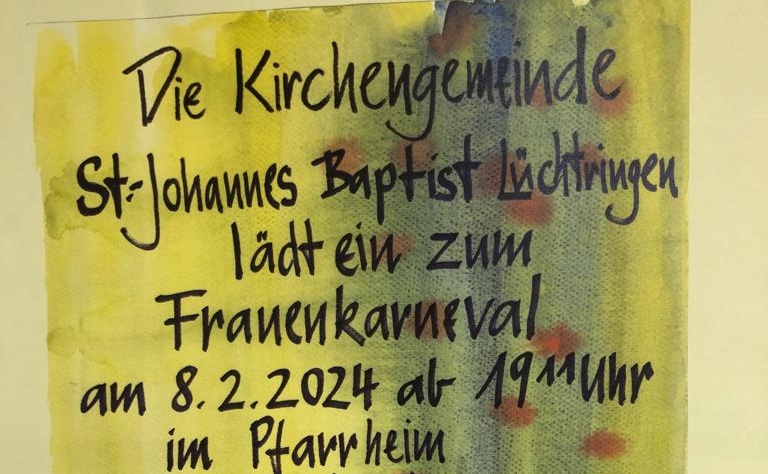 Die Kirchengemeinde
St.-Johannes Baptist Lüchtringen
lädt ein zum
Frauenkarneval
am 8.2.2024 ab 19¹¹ Uhr
im Pfarrheim